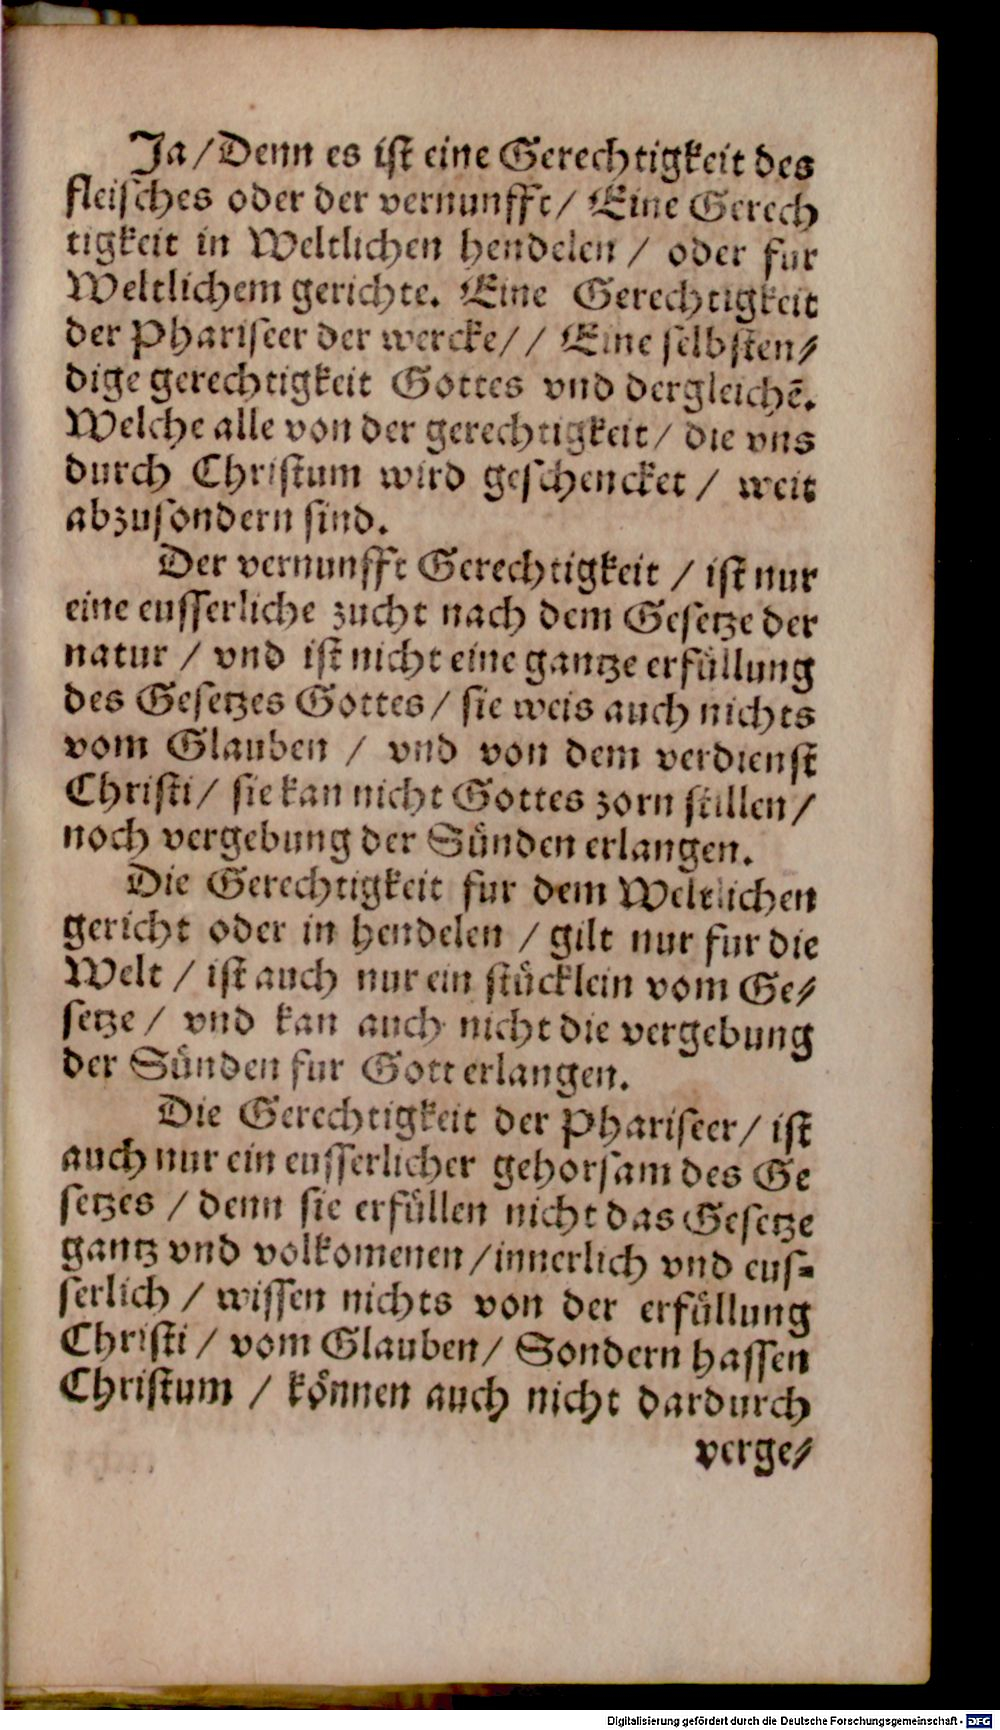 Ja / Denn es ist eine Gerechtigkeit des
fleisches oder der vernunfft / Eine Gerech
tigkeit in Weltlichen hendelen / oder fur
Weltlichem gerichte. Eine Gerechtigkeit
der Phariseer der wercke / / Eine selbsten⸗
dige gerechtigkeit Gottes vnd dergleichē.
Welche alle von der gerechtigkeit / die vns
durch Christum wird geschencket / weit
abzusondern sind.
Der vernunfft Gerechtigkeit / ist nur
eine eusserliche zucht nach dem Gesetze der
natur / vnd ist nicht eine gantze erfüllung
des Gesetzes Gottes / sie weis auch nichts
vom Glauben / vnd von dem verdienst
Christi / sie kan nicht Gottes zorn stillen /
noch vergebung der Sünden erlangen.
Die Gerechtigkeit fur dem Weltlichen
gericht oder in hendelen / gilt nur fur die
Welt / ist auch nur ein stücklein vom Ge⸗
setze / vnd kan auch nicht die vergebung
der Sünden fur Gott erlangen.
Die Gerechtigkeit der Phariseer / ist
auch nur ein eusserlicher gehorsam des Ge
setzes / denn sie erfüllen nicht das Gesetze
gantz vnd volkomenen / innerlich vnd eus⸗
serlich / wissen nichts von der erfüllung
Christi / vom Glauben / Sondern hassen
Christum / können auch nicht dardurch
verge⸗
Digitalisierung gefördert durch die Deutsche Forschungsgemeinschaft - DFG